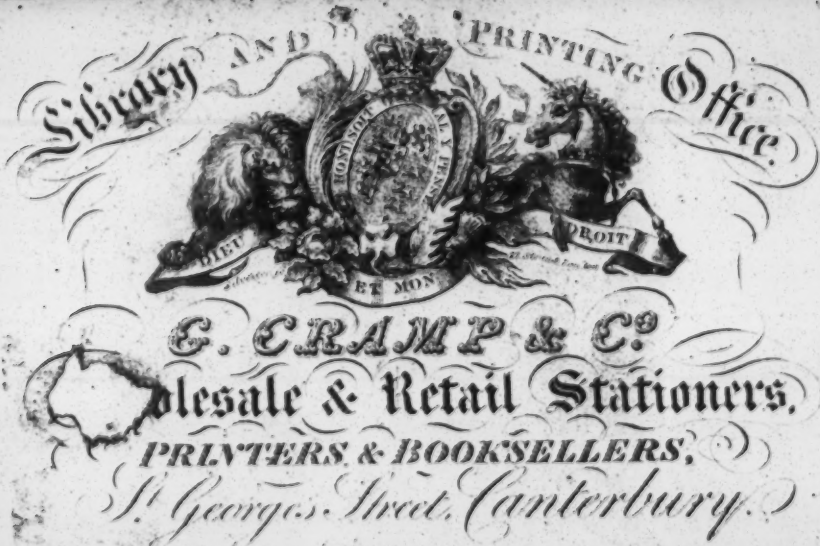 Library AND PRINTING Office.
HONI SOIT
DIEU ET MON DROIT
C. CRAMP & Co.
olesale & Retail Stationers,
PRINTERS & BOOKSELLERS,
St Georges Street, Canterbury.